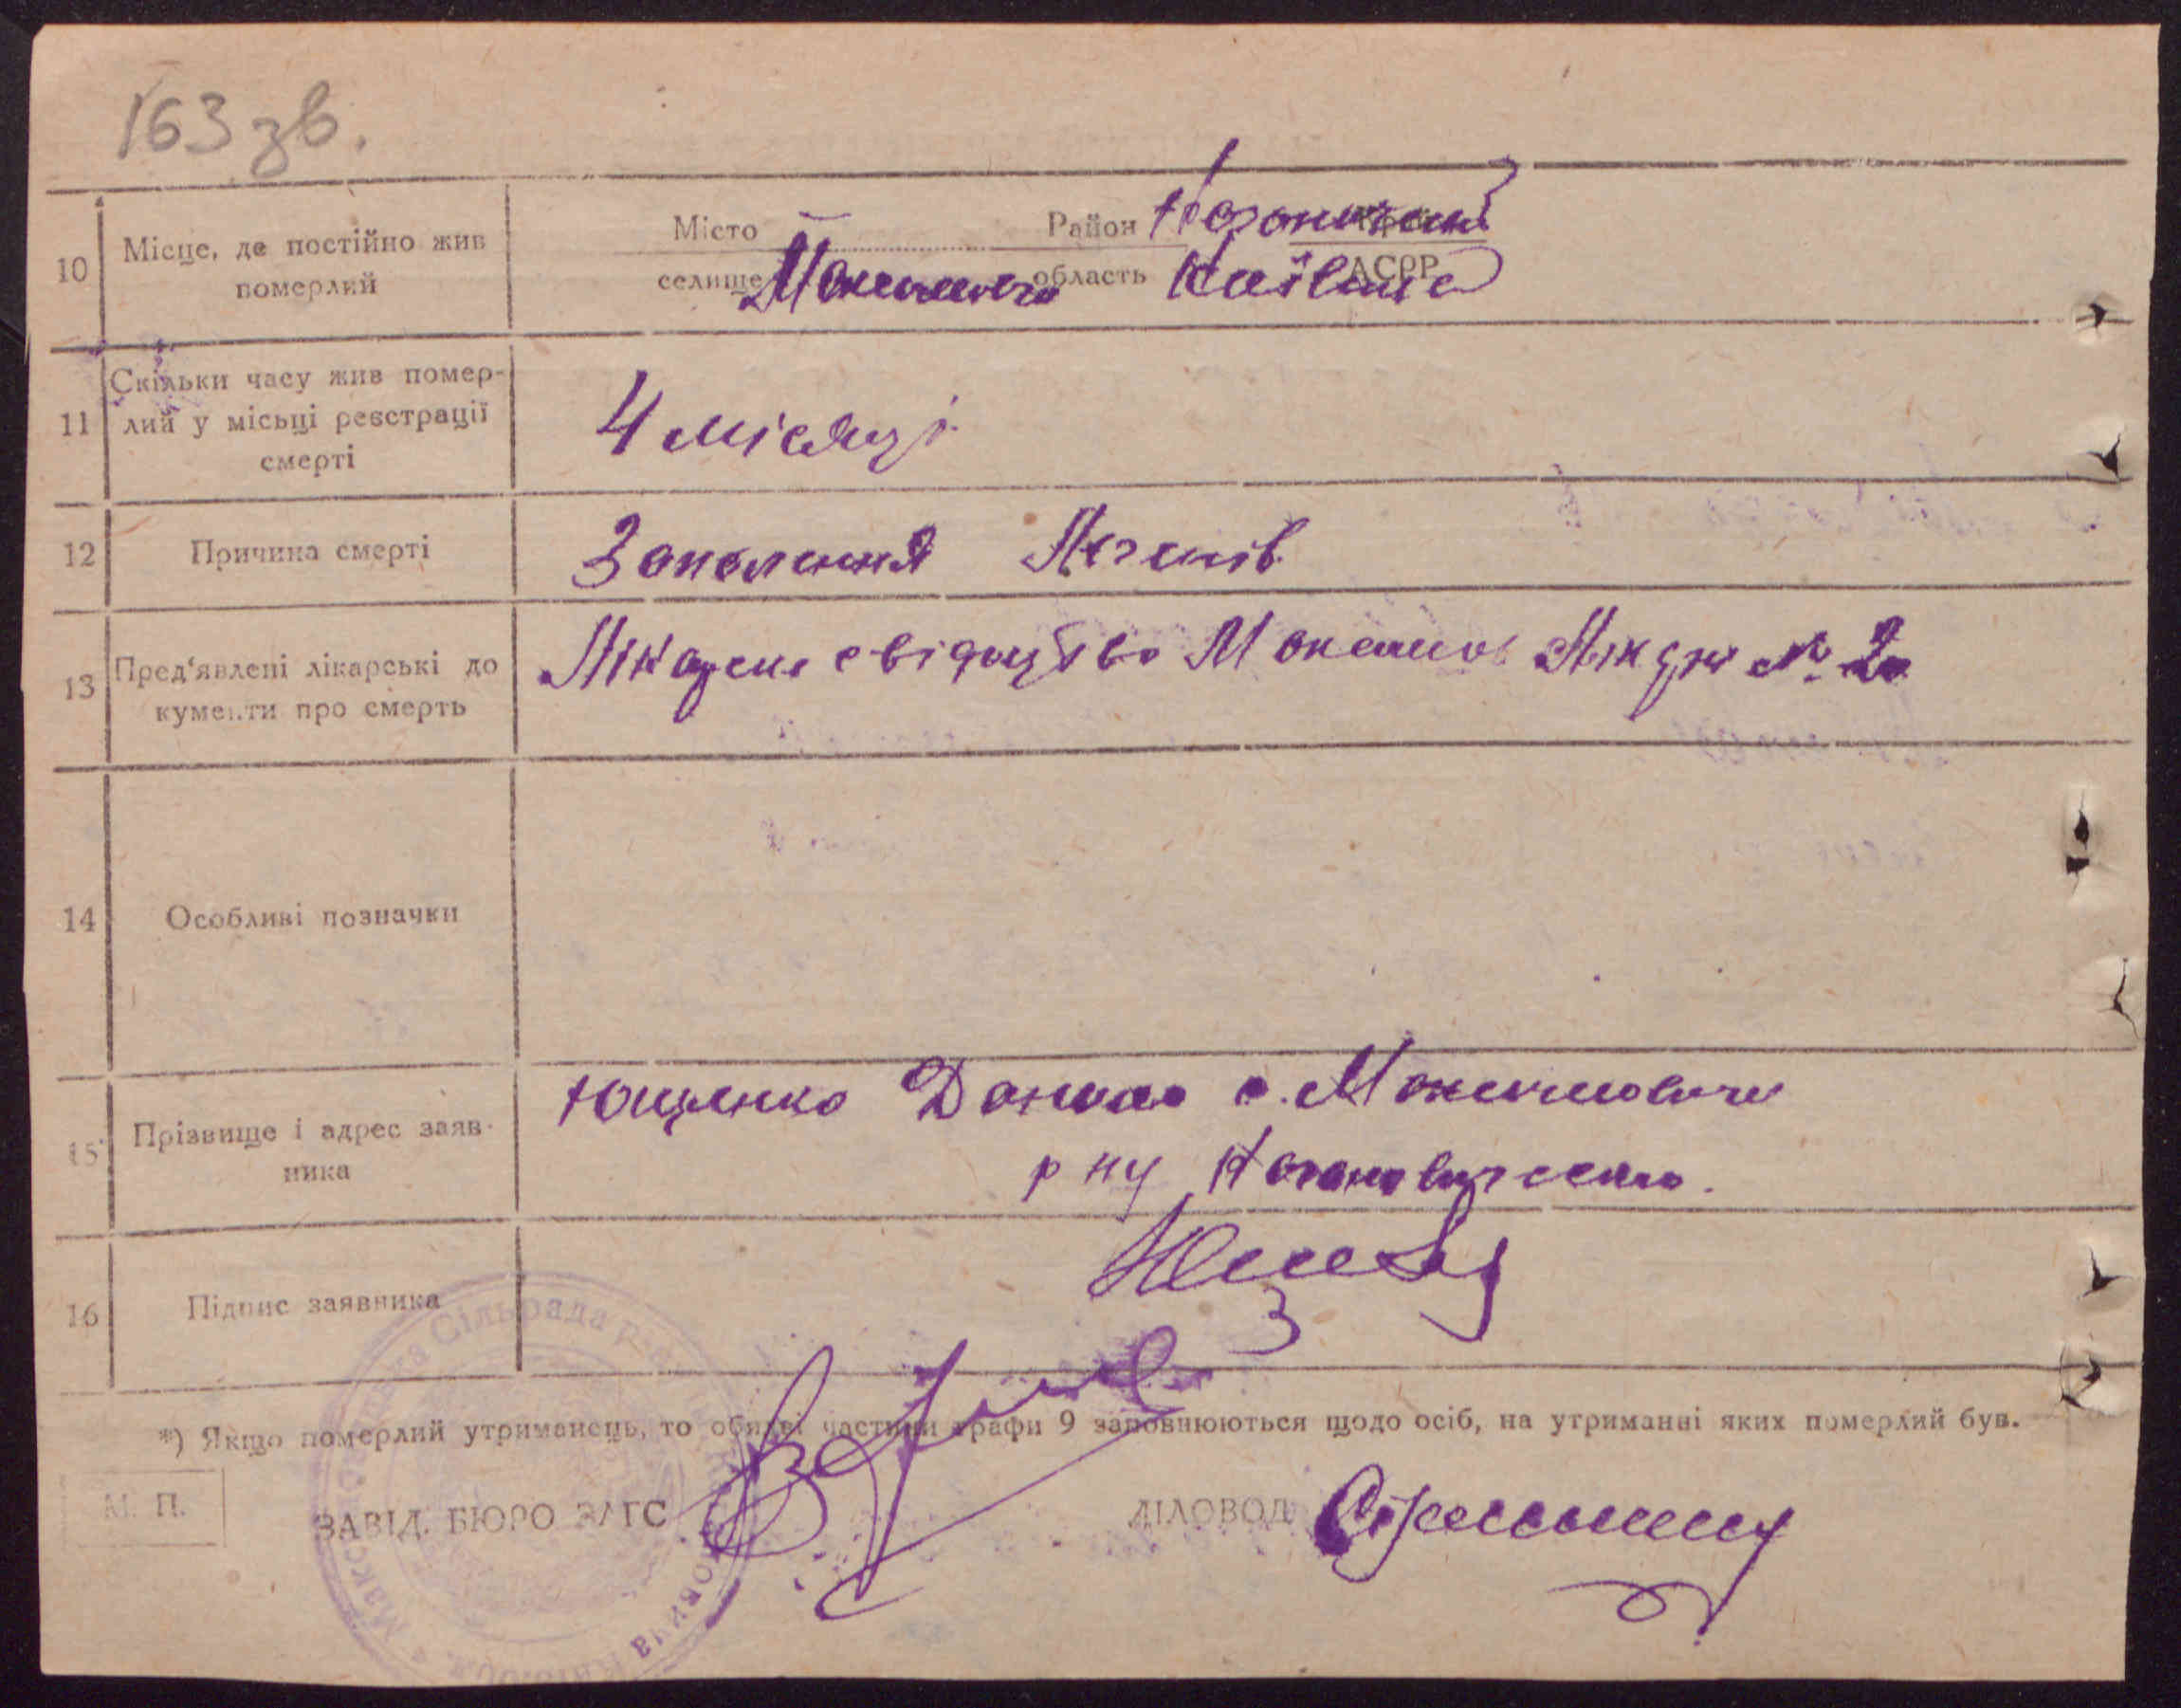 163 зв.
10 Місце, де постійно жив померлий
Місто — Район Кагановицький
селище Максимович область Київська АСРР
11 Скільки часу жив помер-
лий у місьці реєстрації
смерті
4 місяці
12 Причина смерті Запалення Легенів
13 Пред'явлені лікарські до
кументи про смерть
Лікарське свідоцтво Максимов Лік № 2
14 Особливі позначки
15 Прізвище і адрес заяв-
ника
Ющенко Данило с. Максимовичи
р ну Кагановическо.
16 Підпис заявника
*) Якщо померлий утриманець, то обидві частини графи 9 заповнюються щодо осіб, на утриманні яких померлий був.
М. П.
ЗАВІД. БЮРО ЗАГС
ДІЛОВОД
Сільрада